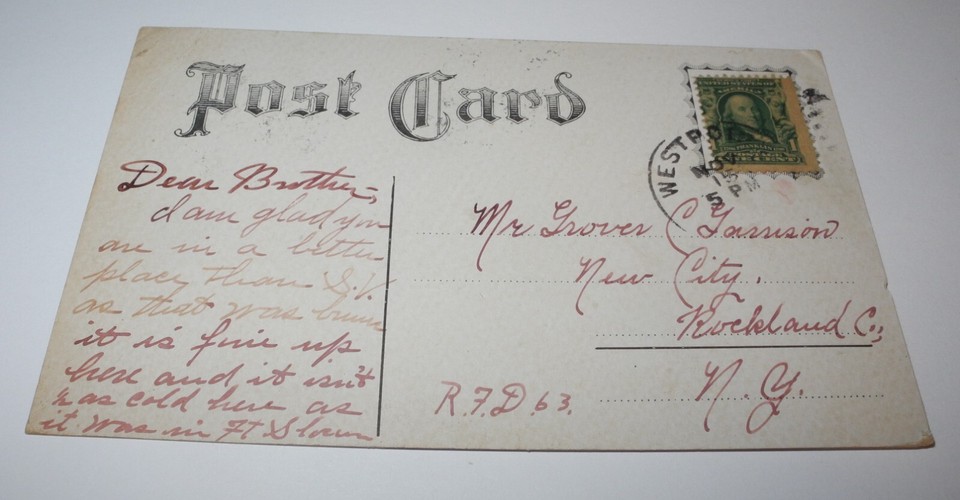 Post Card
UNITED STATES OF
AMERICA
FRANKLIN
POSTAGE
ONE CENT
WESTPO
NOV
5 PM
Dear Brother,
I am glad you
are in a better
place than S.V.
as that was bum
it is fine up
here and it isn't
½ as cold here as
it was in Ft Slocum
Mr Grover C Garrison
New City.
Rockland Co.,
N.Y.
R.F.D. 63.